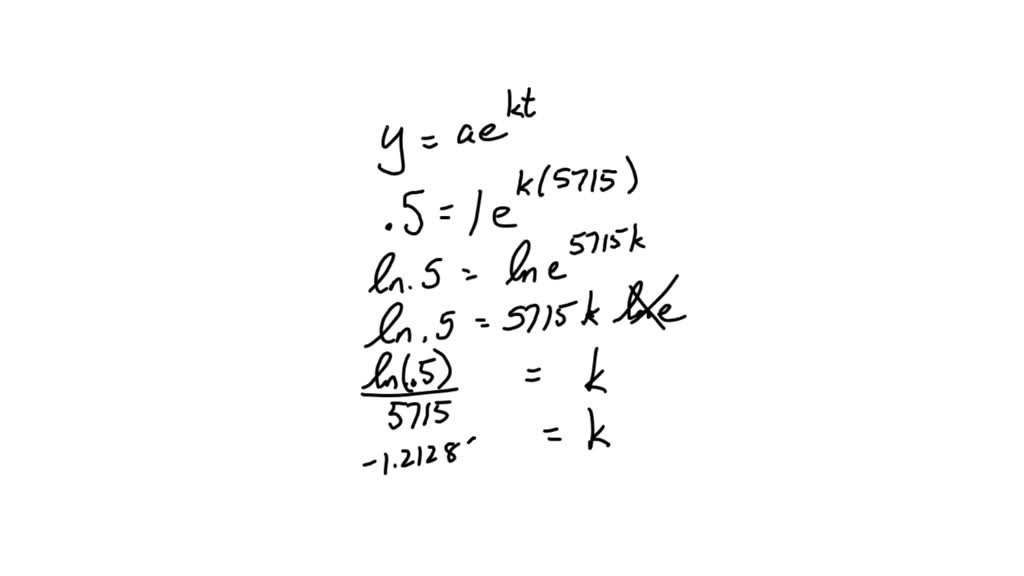 y = ae^kt
.5 = 1e^k(5715)
ln .5 = ln e^5715k
ln .5 = 5715k ln e
ln(.5)/5715 = k
-1.2128 = k